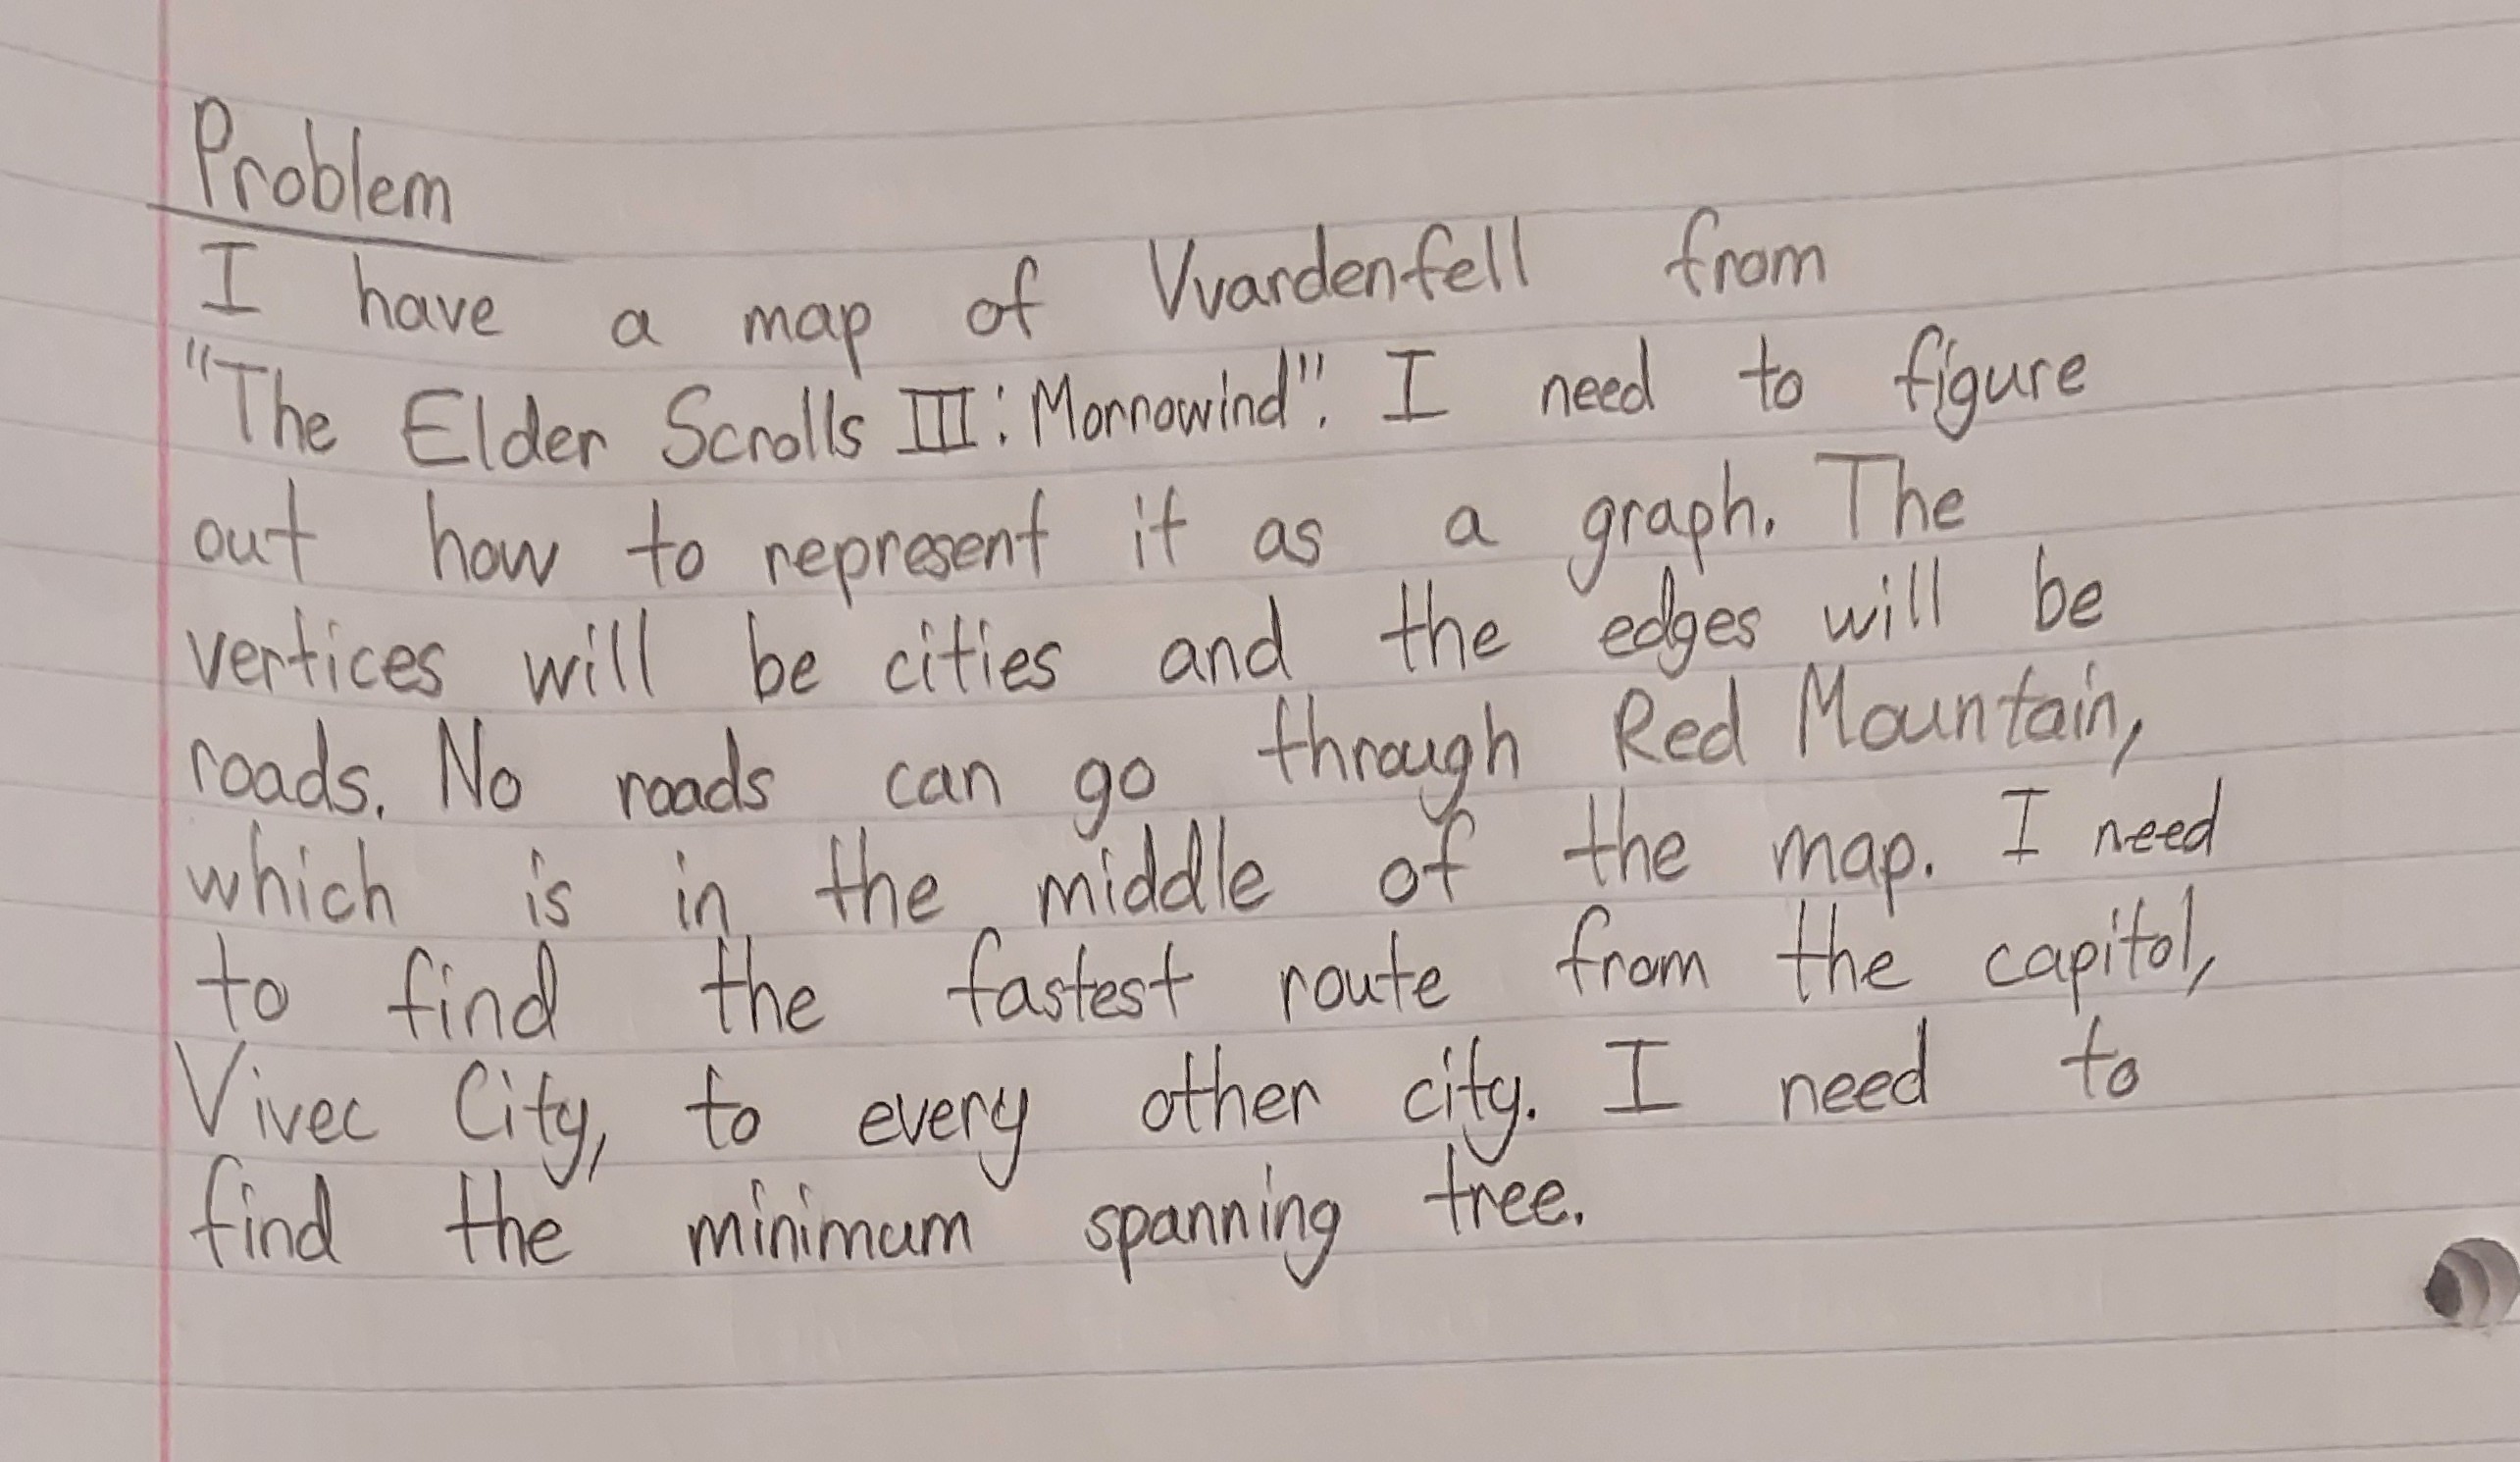 Problem
I have a map of Vvardenfell from
"The Elder Scrolls III: Morrowind". I need to figure
out how to represent it as a graph. The
vertices will be cities and the edges will be
roads. No roads can go through Red Mountain,
which is in the middle of the map. I need
to find the fastest route from the capitol,
Vivec City, to every other city. I need to
find the minimum spanning tree.